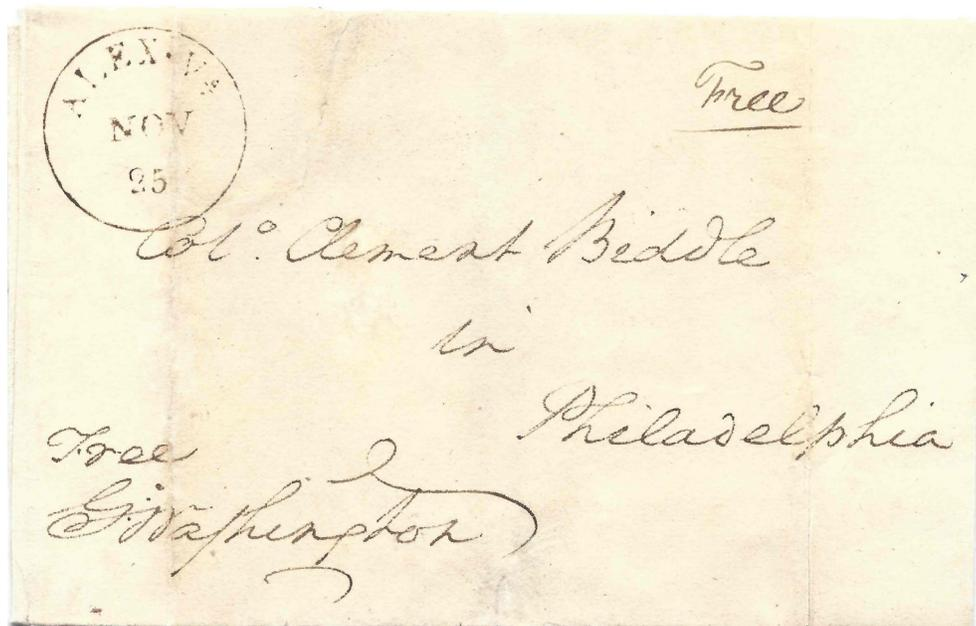 ALEX·Vª
NOV
25
Free
Colº. Clement Biddle
in
Philadelphia
Free
G:Washington